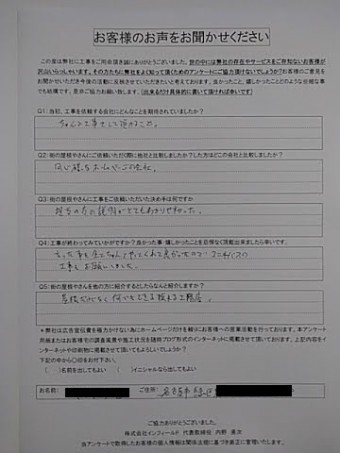 お客様のお声をお聞かせください
この度は弊社に工事をご用命頂き誠にありがとうございました。世の中には弊社の存在やサービスをご存知ないお客様が
沢山いらっしゃいます。その方たちに弊社をよく知って頂くためのアンケートにご協力頂けないでしょうか？お客様のご意見を
お聞かせいただき今後の活動に反映させていただきたいと考えております。良かったこと、嬉しかったことどのような些細な事
でも結構です。是非ご協力お願い致します。（出来るだけ具体的に書いて頂ければ幸いです）
Q1:当初、工事を依頼する会社にどんなことを期待されていましたか？
ちゃんと工事をして頂けること。
Q2:街の屋根やさんにご依頼いただく際に他社と比較しましたか？した方はどこの会社と比較しましたか？
Q3:街の屋根やさんに工事をご依頼いただいた決め手は何ですか
担当の方の説明がとても
Q4:工事が終わってみていかがですか？良かった事・嬉しかったことを忌憚なく頂戴出来ましたら幸いです。
工事もお願いしました。
Q5:街の屋根やさんを他の方に紹介するとしたらなんと紹介しますか？
屋根だけでなく何でも
＊弊社は広告宣伝費を極力かけない為にホームページだけを頼りにお客様への営業活動を行っております。本アンケート
用紙またはお客様宅の調査風景や施工状況を随時ブログ形式のインターネットに掲載させて頂いております。上記内容をイ
ンターネットや印刷物に掲載させて頂いてもよろしいでしょうか？
下記の中から〇印をお付け下さい。
（　）名前を出してもよい　（　）イニシャルなら出してもよい
お名前：　ご住所：名古屋市緑区
ご協力ありがとうございました。
株式会社インフィールド 代表取締役 内野
当アンケートで取得したお客様の個人情報は関係法規に基づき厳正に管理いたします。